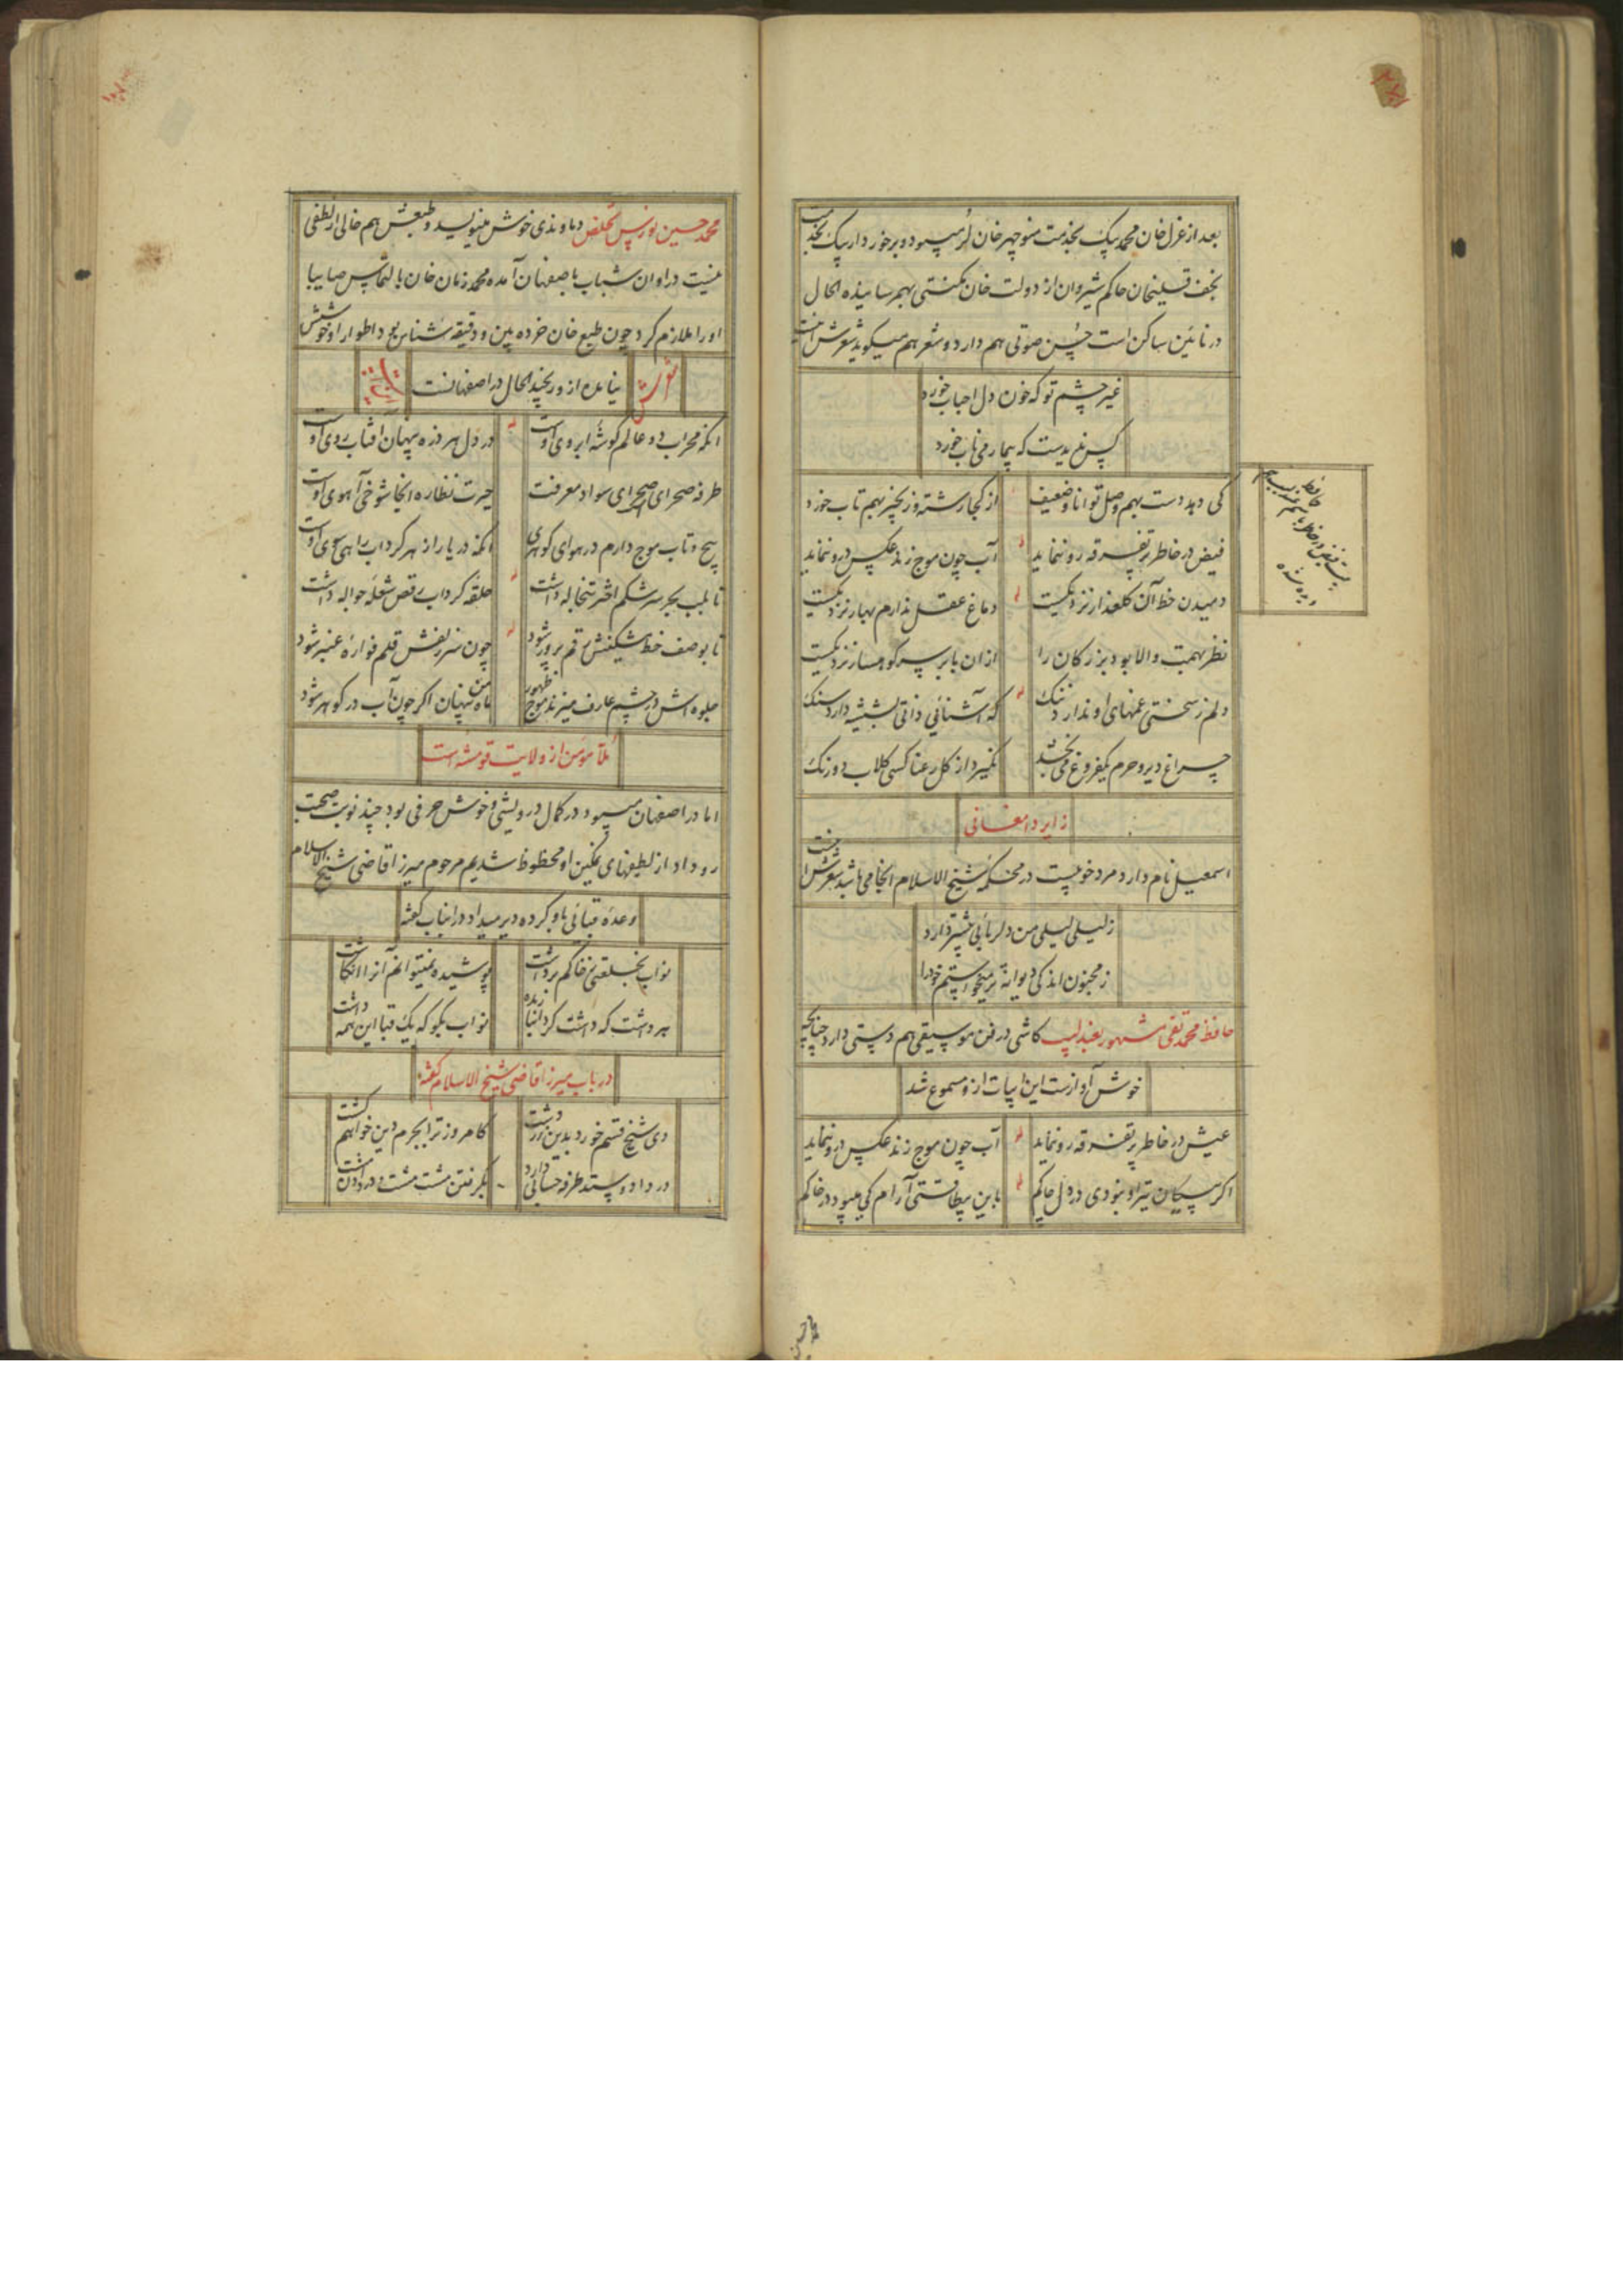 بعد از عزل خان محمد بیک بخدمت منوچهر خان لر میبود و برخوردار بیک بخدمت
نجف قلیخان حاکم شیروان از دولت خان مکنتی بهم رسانیده الحال
در نائین ساکن است حسن صوتی هم دارد و شعر هم میکوید شعرش اینست
غیر چشم تو که خون دل احباب خورد
کس ندیدست که بیمار می ناب خورد
کی دهد دست بهم وصل توانا و ضعیف
از کجا رشته و زنجیر بهم تاب خورد
فیض در خاطر پر تفرقه رو ننماید
آب چون موج زند عکس درو ننماید
دمیدن خط آن کلعذار نزدیکست
دماغ عقل ندارم بهار نزدیکست
نظر بهمت والا بود بزرکان را
از ان بابر سر کوهسار نزدیکست
دلم ز سختی غمهای او ندارد ننک
که آشنائی ذاتی بشیشه دارد سنک
چراغ دیر و حرم یکفروغ می بخشد
نکیرد از کل رعنا کسی کلاب دو رنک
زایر دامغانی
اسمعیل نام دارد مرد خوبیست در محکمه شیخ الاسلام انجا می باشد شعرش اینست
ز لیلی لیلی من دلربائی بیشتر دارد
ز مجنون اندکی دیوانه تر میخواستم خود را
حافظ محمد تقی مشهور بعندلیب کاشی در فن موسیقی هم دستی دارد چنانچه
خوش آوازست این ابیات ازو مسموع شد
عیش در خاطر پر تفرقه رو ننماید
آب چون موج زند عکس درو ننماید
اکر پیکان تیر او نبودی در دل چاکم
باین بیطاقتی آرام کی میبود در خاکم
حافظ
بیت فیض در خاطر
دیده شده
محمد حسین
محمد حسین نورس تخلص دماوندی خوش مینویسد و طبعش هم خالی از لطفی
نیست در اوان شباب باصفهان آمده محمد زمان خان بالتماس صایبا
او را ملازم کرد چون طبع خان خرده بین و دقیقه شناس بود اطوار او خوشش
نیامده از و رنجید الحال در اصفهانست
انکه محراب دو عالم کوشه ابروی اوست
در دل هر ذره پنهان آفتاب روی اوست
طرفه صحرای صحرای سواد معرفت
حیرت نظاره انجا شوخی آهوی اوست
پیچ و تاب موج دارم در هوای کوهری
انکه دریا را از هر کرداب راهی سوی اوست
تا بلب بحر سرشکم اخر تبخاله داشت
حلقه کرداب رقص شعله جواله داشت
تا بوصف خط مشکینش رقم پرور شود
چون سر زلفش قلم فواره عنبر شود
جلوه اش در چشم عارف میزند موج ظهور
ماه من پنهان اکر چون آب در کوهر شود
ملا مؤمن از ولایت قومشه است
اما در اصفهان میبود در کمال درویشی و خوش حرفی بود چند نوبت صحبت
رو داد از لطیفهای نمکین او محظوظ شدیم مرحوم میرزا قاضی شیخ الاسلام
وعده قبائی باو کرده دیر میداد در اینباب کفته
نواب بخلعتی ز خاکم برداشت
پوشیده نمیتوانم آنرا انکاشت
برداشت که داشت کرد انبازده
نواب بکو که یک قبا این همه داشت
در باب میرزا قاضی شیخ الاسلام کفته
دی شیخ قسم خورد بدین زردشت
کامروز ترا بجرم دین خواهم کشت
در داد و ستد طرفه حسابی دارد
بکرفتن مشت مشت و در دادن مشت